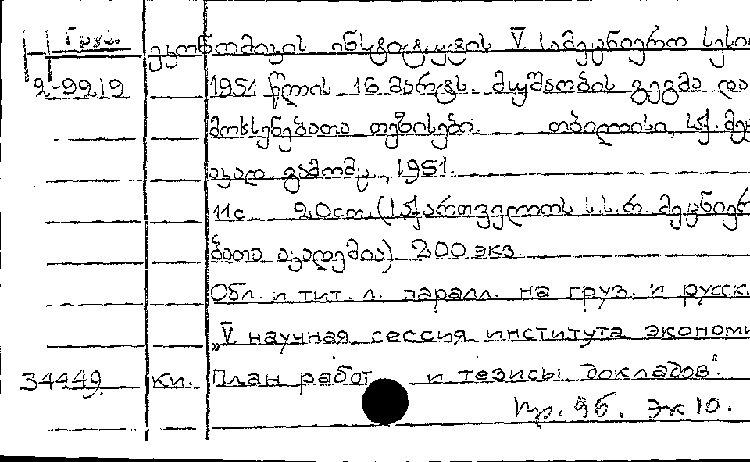 Груз.
ეკონომიკის ინსტიტუტის V სამეცნიერო სესია
2-9919 1951 წლის 16 მარტს. მუშაობის გეგმა და
მოხსენებათა თეზისები. თბილისი, საქ. მეც
აკად გამომც., 1951.
11с 20см. (საქართველოს ს.ს.რ. მეცნიერ
ებათა აკადემია) 200 экз
Обл. и тит. л. паралл. на груз. и русск.
„V научная сессия института экономи
34449 кп. План работ и тезисы докладов".
Пр. 96. Эк 10.